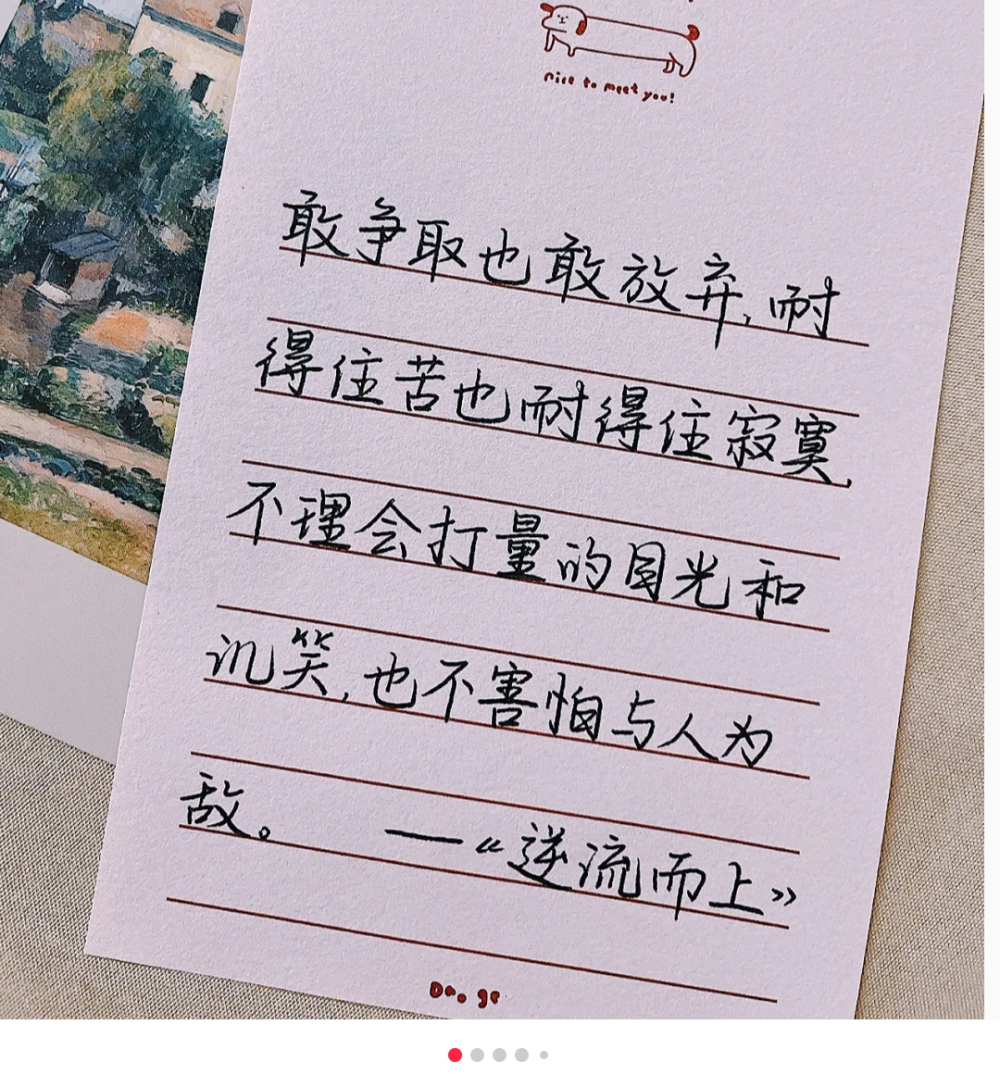 nice to meet you!
敢争取也敢放弃,耐
得住苦也耐得住寂寞,
不理会打量的目光和
讥笑,也不害怕与人为
敌。 ——《逆流而上》